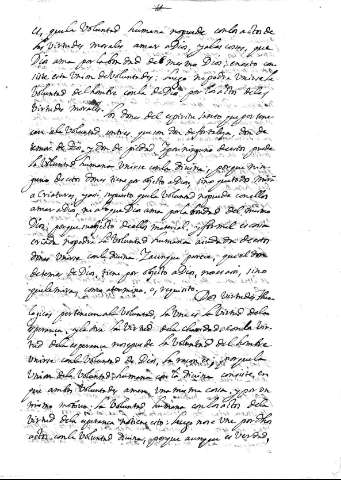 es, que la Voluntad humana no puede con los actos de
las Virtudes morales amar a Dios, y a las cosas, que
Dios ama por la bondad del mesmo Dios; en esto con
siste esta Union de Voluntades; luego no podra Unirse la
Voluntad del hombre con la de Dios por los actos de las
Virtudes morales.
Los dones del espiritu santo que por tene
cen a la Voluntad, son tres, que son don de fortaleza, don de
temor de Dios, y don de piedad. Y con ninguno de estos puede
la Voluntad humana Unirse con la divina; porque nin
guno de estos dones tiene por objeto a Dios, sino que todos miran
a Criaturas, y asi, supuesto que la Voluntad no puede con ellos
amar a Dios, ni a lo que Dios ama por la bondad del mismo
Dios; porque no es objeto de ellos material, ni formal
no podra la Voluntad humana de estos
dones Unirse con la divina. Y aunque parece, que el don
de temor de Dios, tiene por objeto a Dios, no es asi, sino
que le mira, como a termino, o, requisito.
Dos Virtudes theo
logicas pertenecen a la Voluntad, la Una es la Virtud de la
esperanza, y la otra la Virtud de la charidad. Con la Vir
tud de la esperanza no se puede la Voluntad del hombre
Unirse con la Voluntad de Dios, la razon es; porque la
Union de la Voluntad humana con la Divina consiste, en
que ambas Voluntades amen una misma cosa, y por un
mismo motivo. la Voluntad humana con los actos de la
Virtud de la esperanza no tiene esto: luego no se Une, por dhos
actos con la Voluntad divina, porque aunque es Verdad,